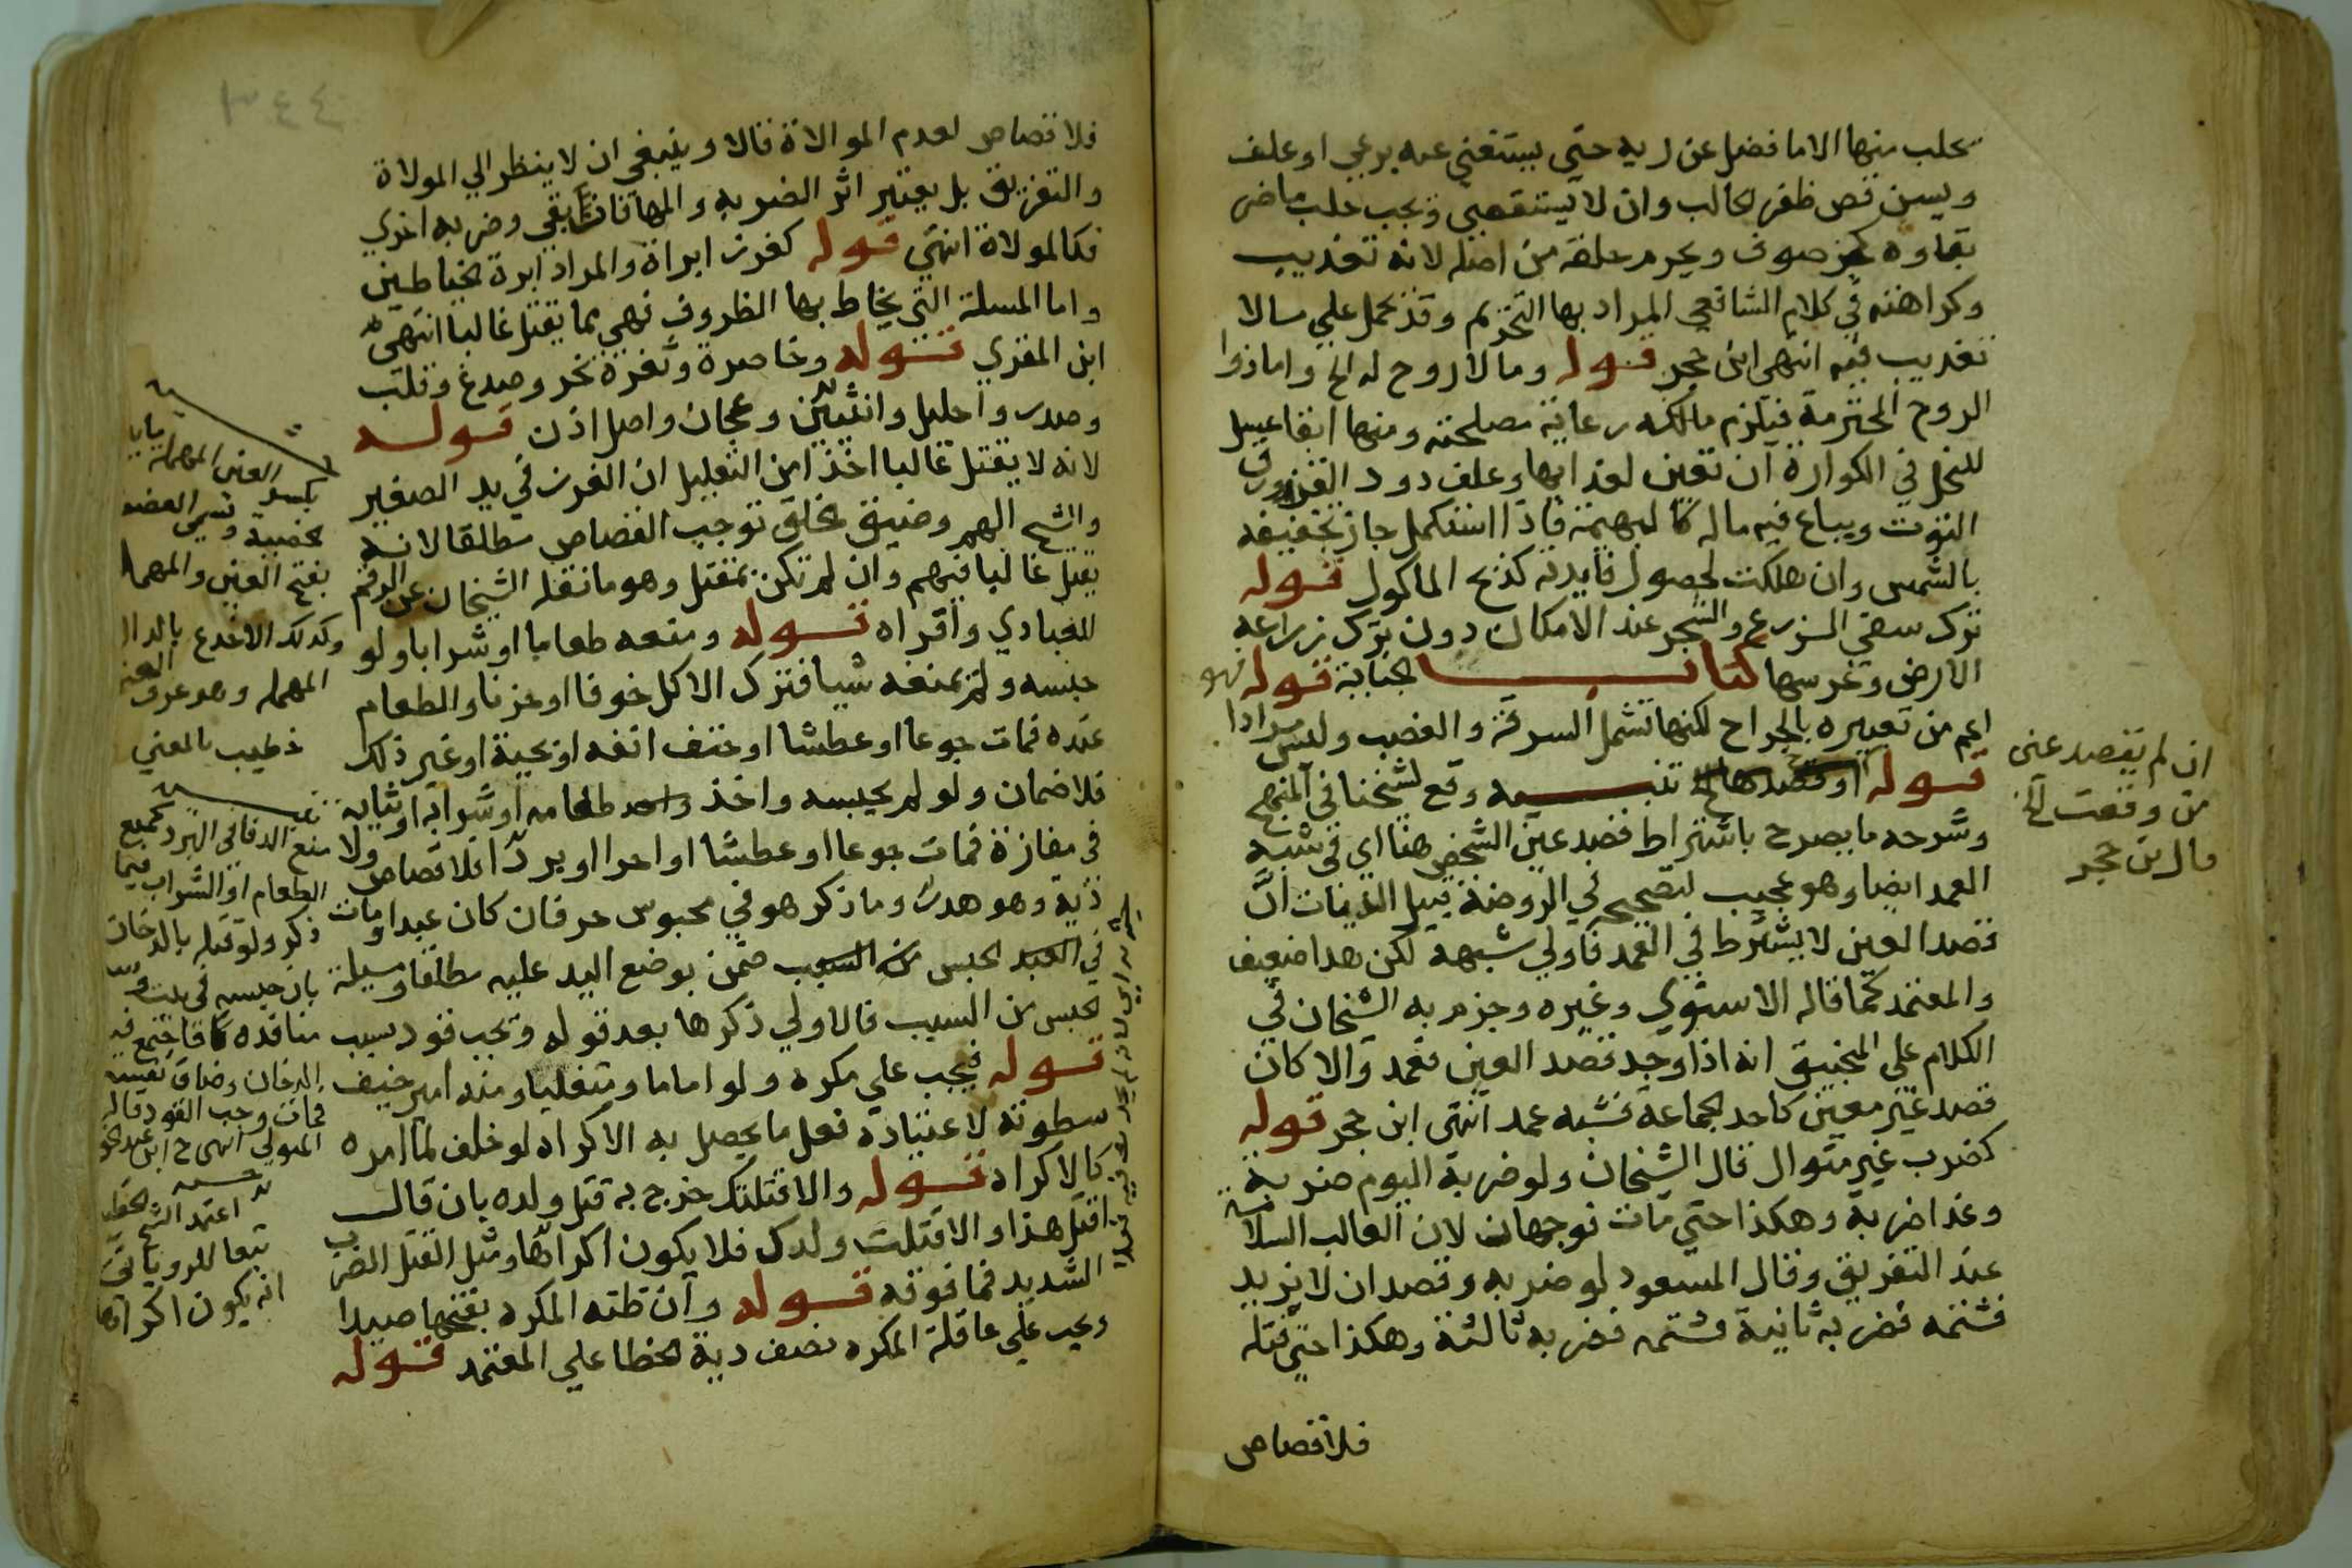 يحلب منها الا ما فضل عن ريه حتي يستغني عنه برعي او علف
ويسن قص ظفر الحالب وان لا يستقصي ويجب حلب ما ضر
بقاوه كجز صوف ويحرم حلقه من اصله لانه تعذيب
وكراهته في كلام الشافعي المراد بها التحريم وقد تحمل علي ما لا
تعذيب فيه انتهي ابن حجر قوله وما لا روح له الخ واما ذوا
الروح المحترمة فيلزم مالكه رعاية مصلحته ومنها ابقا عسل
للنحل في الكوارة ان تعين لغذايها وعلف دود القز ورق
التوت ويباع فيه ماله كالبهيمة فاذا استكمل جاز تجفيفه
بالشمس وان هلكت لحصول فايدته كذبح الماكول قوله
ترك سقي الزرع والشجر عند الامكان دون ترك زراعة
الارض وغرسها كتاب الجناية قوله فهو
اعم من تعبيره بالجراح لكنها تشمل السرقة والغصب وليس مرادا
قوله تنبيه وقع لشيخنا في المنهج
وشرحه ما يصرح باشتراط قصد عين الشخص هنا اي في شبه
العمد ايضا وهو عجيب لتصحيح في الروضة قبيل الديات ان
قصد العين لا يشترط في العمد فاولي شبهه لكن هذا ضعيف
والمعتمد كما قاله الاسنوي وغيره وجزم به الشيخان في
الكلام علي المنجنيق انه اذا وجد قصد العين فعمد والا كان
قصد غير معين كاحد الجماعة فشبه عمد انتهي ابن حجر قوله
كضرب غير متوال قال الشيخان ولو ضربة اليوم ضربة
وغدا ضربة وهكذا حتي مات فوجهان لان الغالب السلامة
عند التفريق وقال المسعود لو ضربه وقصد ان لا يزيد
فشتمه فضربه ثانية فشتمه فضربه ثالثة وهكذا حتي قتله
فلا قصاص
ان لم يقصد عين
من وقعت الخ
قال ابن حجر
فلا قصاص لعدم الموالاة قالا وينبغي ان لا ينظر الي المولاة
والتفريق بل يعتبر اثر الضربه والمها فان بقي وضربه اخري
فكالمولاة انتهي قوله كغرز ابراة والمراد ابرة الخياطين
واما المسلة التي يخاط بها الظروف فهي مما يقتل غالبا انتهي
ابن المقري قوله وخاصرة وثغرة نحر وصدغ وقلب
وصدر واحليل وانثيين وعجان واصل اذن قوله
لانه لا يقتل غالبا اخذ من التعليل ان الغرز في يد الصغير
والشيخ الهم وضيق الخلق توجب القصاص مطلقا لانه
يقتل غالبا فيهم وان لم تكن بمقتل وهو ما نقله الشيخان عن الرقم
للعبادي واقراه قوله ومنعه طعاما او شرابا ولو
حبسه ولم يمنعه شيا فترك الاكل خوفا او حزنا والطعام
عنده فمات جوعا او عطشا او حتف انفه او بحية او غير ذلك
فلا ضمان ولو لم يحبسه واخذ طعامه او شرابه او ثيابه
في مفازة فمات جوعا او عطشا او احرا او بردا فلا قصاص ولا
دية وهو هدر وما ذكر هو في محبوس حر فان كان عبدا ومات
في الحبس ضمن بوضع اليد عليه مطلقا وسيلة
الحبس من السبب فالاولي ذكرها بعد قوله ويجب قود بسبب
قوله فيجب علي مكره ولو اماما ومتغلبا ومنه امر خيف
سطوته لاعتياده فعل ما يحصل به الاكراه لو خلف لما امره
كالاكراه قوله والا قتلتك خرج به قتل ولده بان قال
اقتل هذا والا قتلت ولدك فلا يكون اكراها ومثل القتل الضرب
الشديد فما فوقه قوله وان ظنه المكره بفتحها صيدا
ويجب علي عاقلة المكره نصف دية الخطا علي المعتمد قوله
بكسر العين المهملة
وتسمي العضو
بفتح العين والمهملة
وكذلك الاخدع بالدال
المهملة وهو عرق العنق
خطيب بالمعني
منع الدفا في البرد كمنع
الطعام او الشراب فيما
ذكر ولو قتله بالدخان
بان حبسه في بيت وسد
منافذه فاجتمع فيه
الدخان وضاق نفسه
فمات وجب القود قاله
المتولي انتهي
اعتمد الشيخ الخطيب
تبعا للروياني
انه يكون اكراها